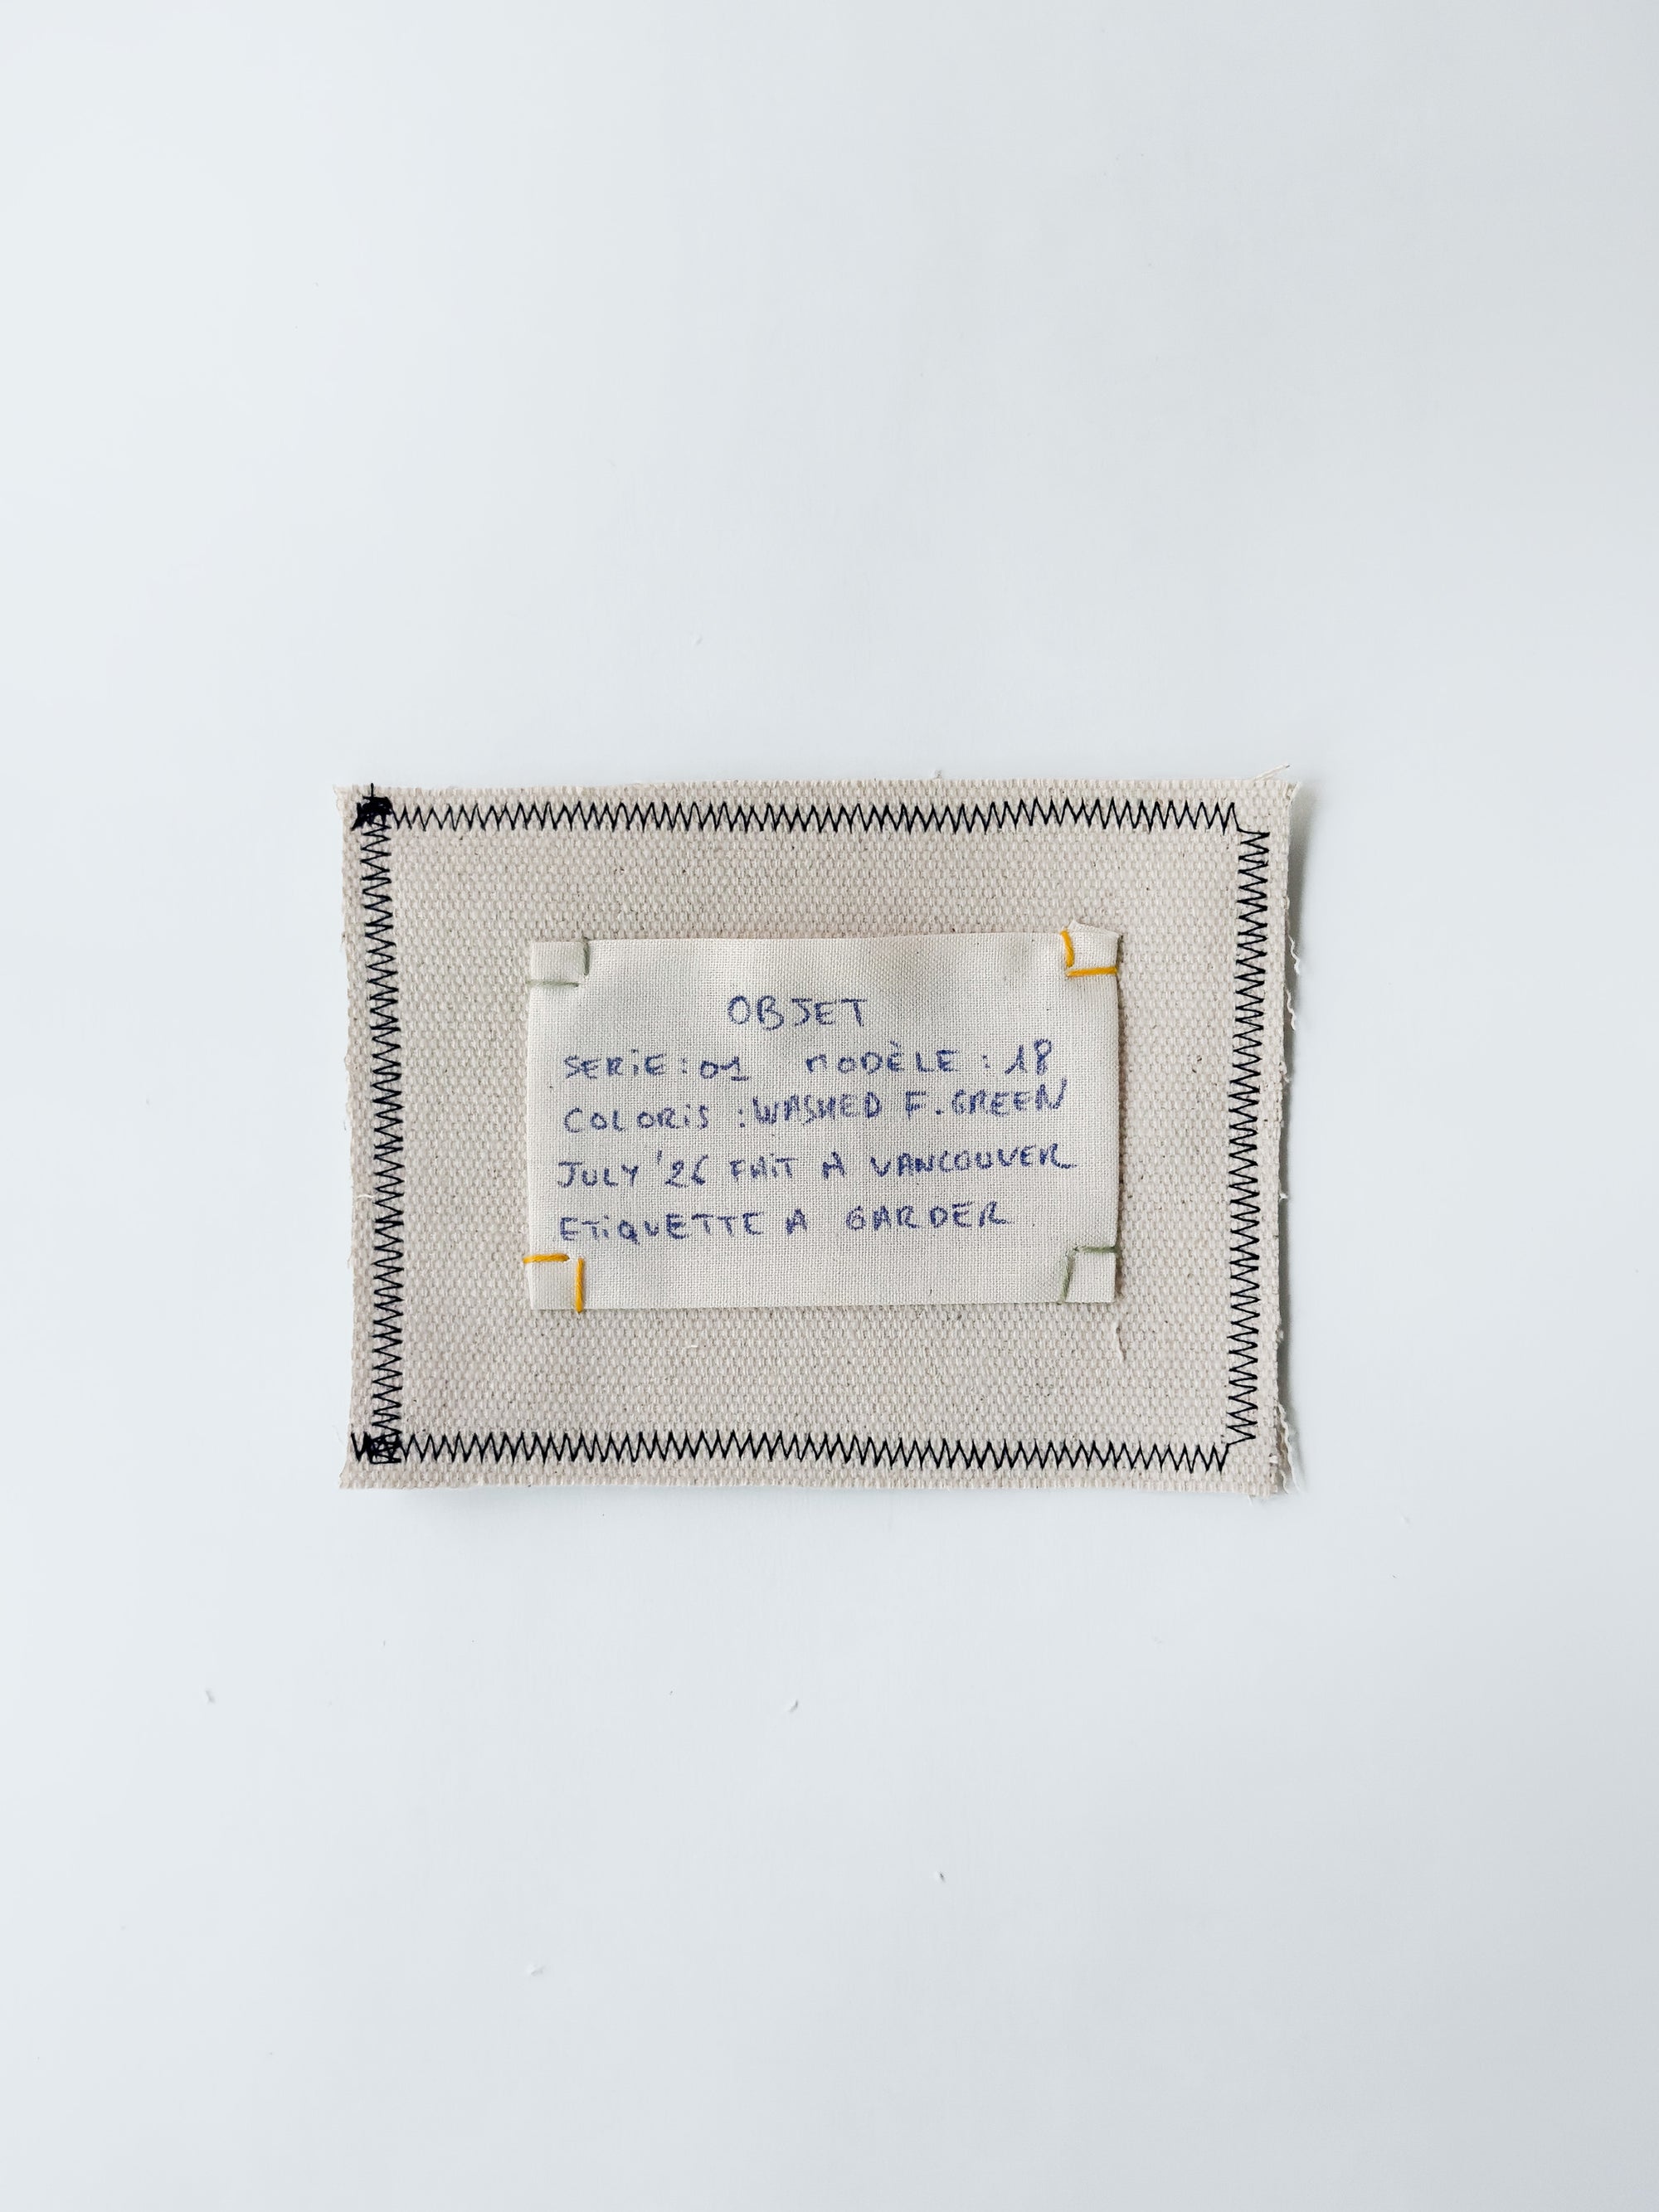 OBJET
SERiE : 01 MODÈLE : 18
COLORiS : WASHED F. GREEN
JULY '26 FAiT A VANCOUVER
ETiQUETTE A GARDER